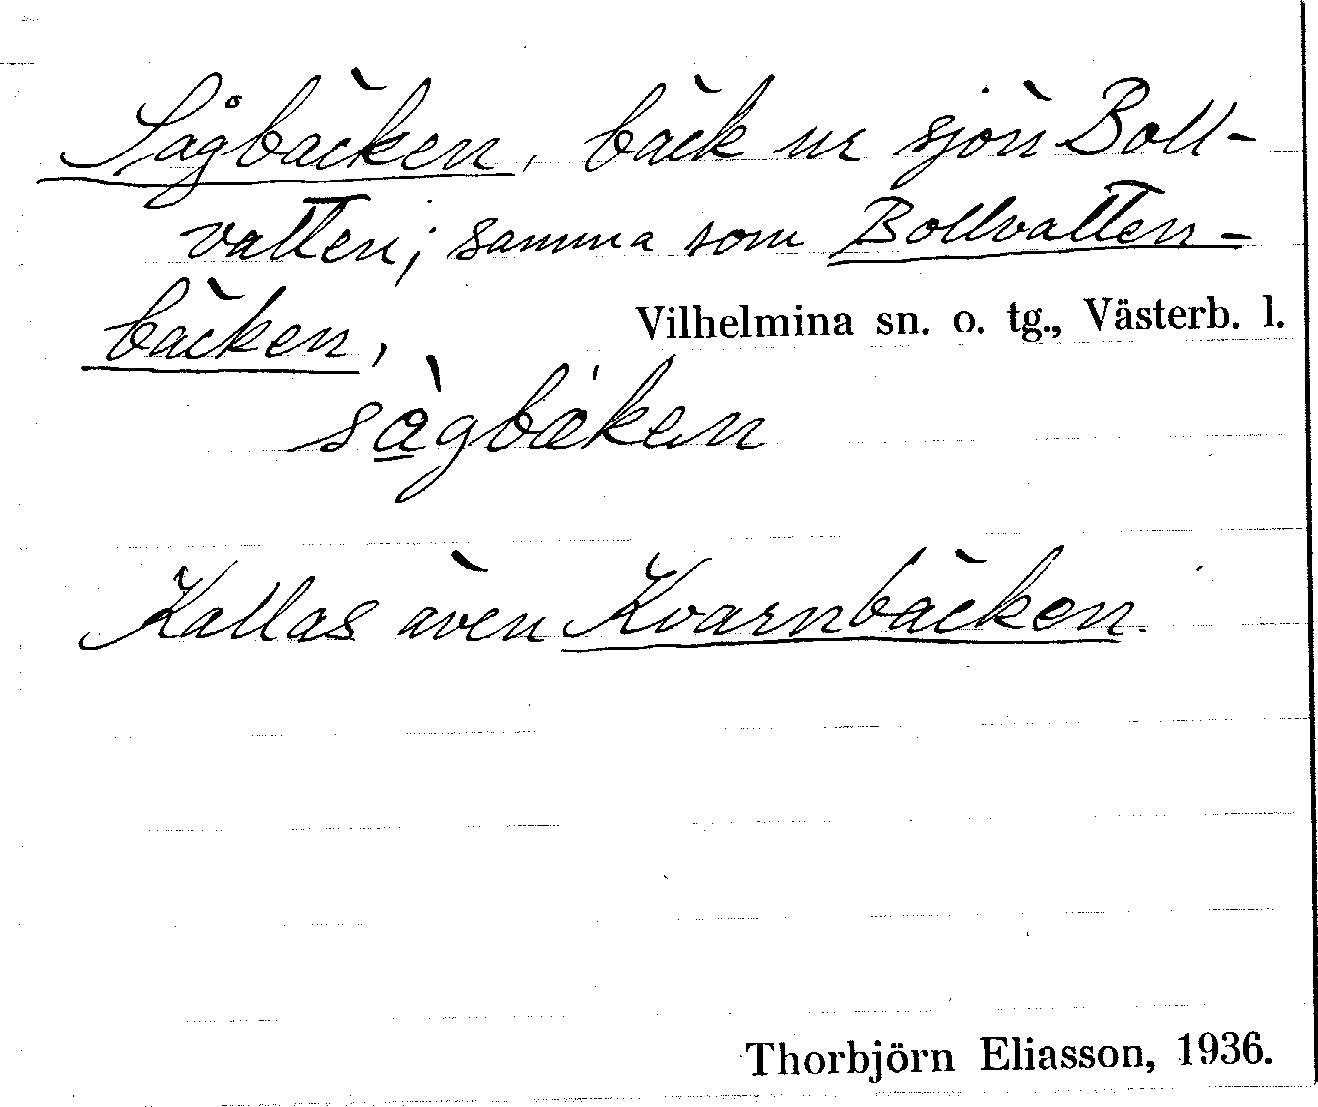 Sågbäcken, bäck ur sjön Boll-
vatten; samma som Bollvatten-
bäcken,
Vilhelmina sn. o. tg., Västerb. l.
sàgbǽken
Kallas även Kvarnbäcken.
Thorbjörn Eliasson, 1936.